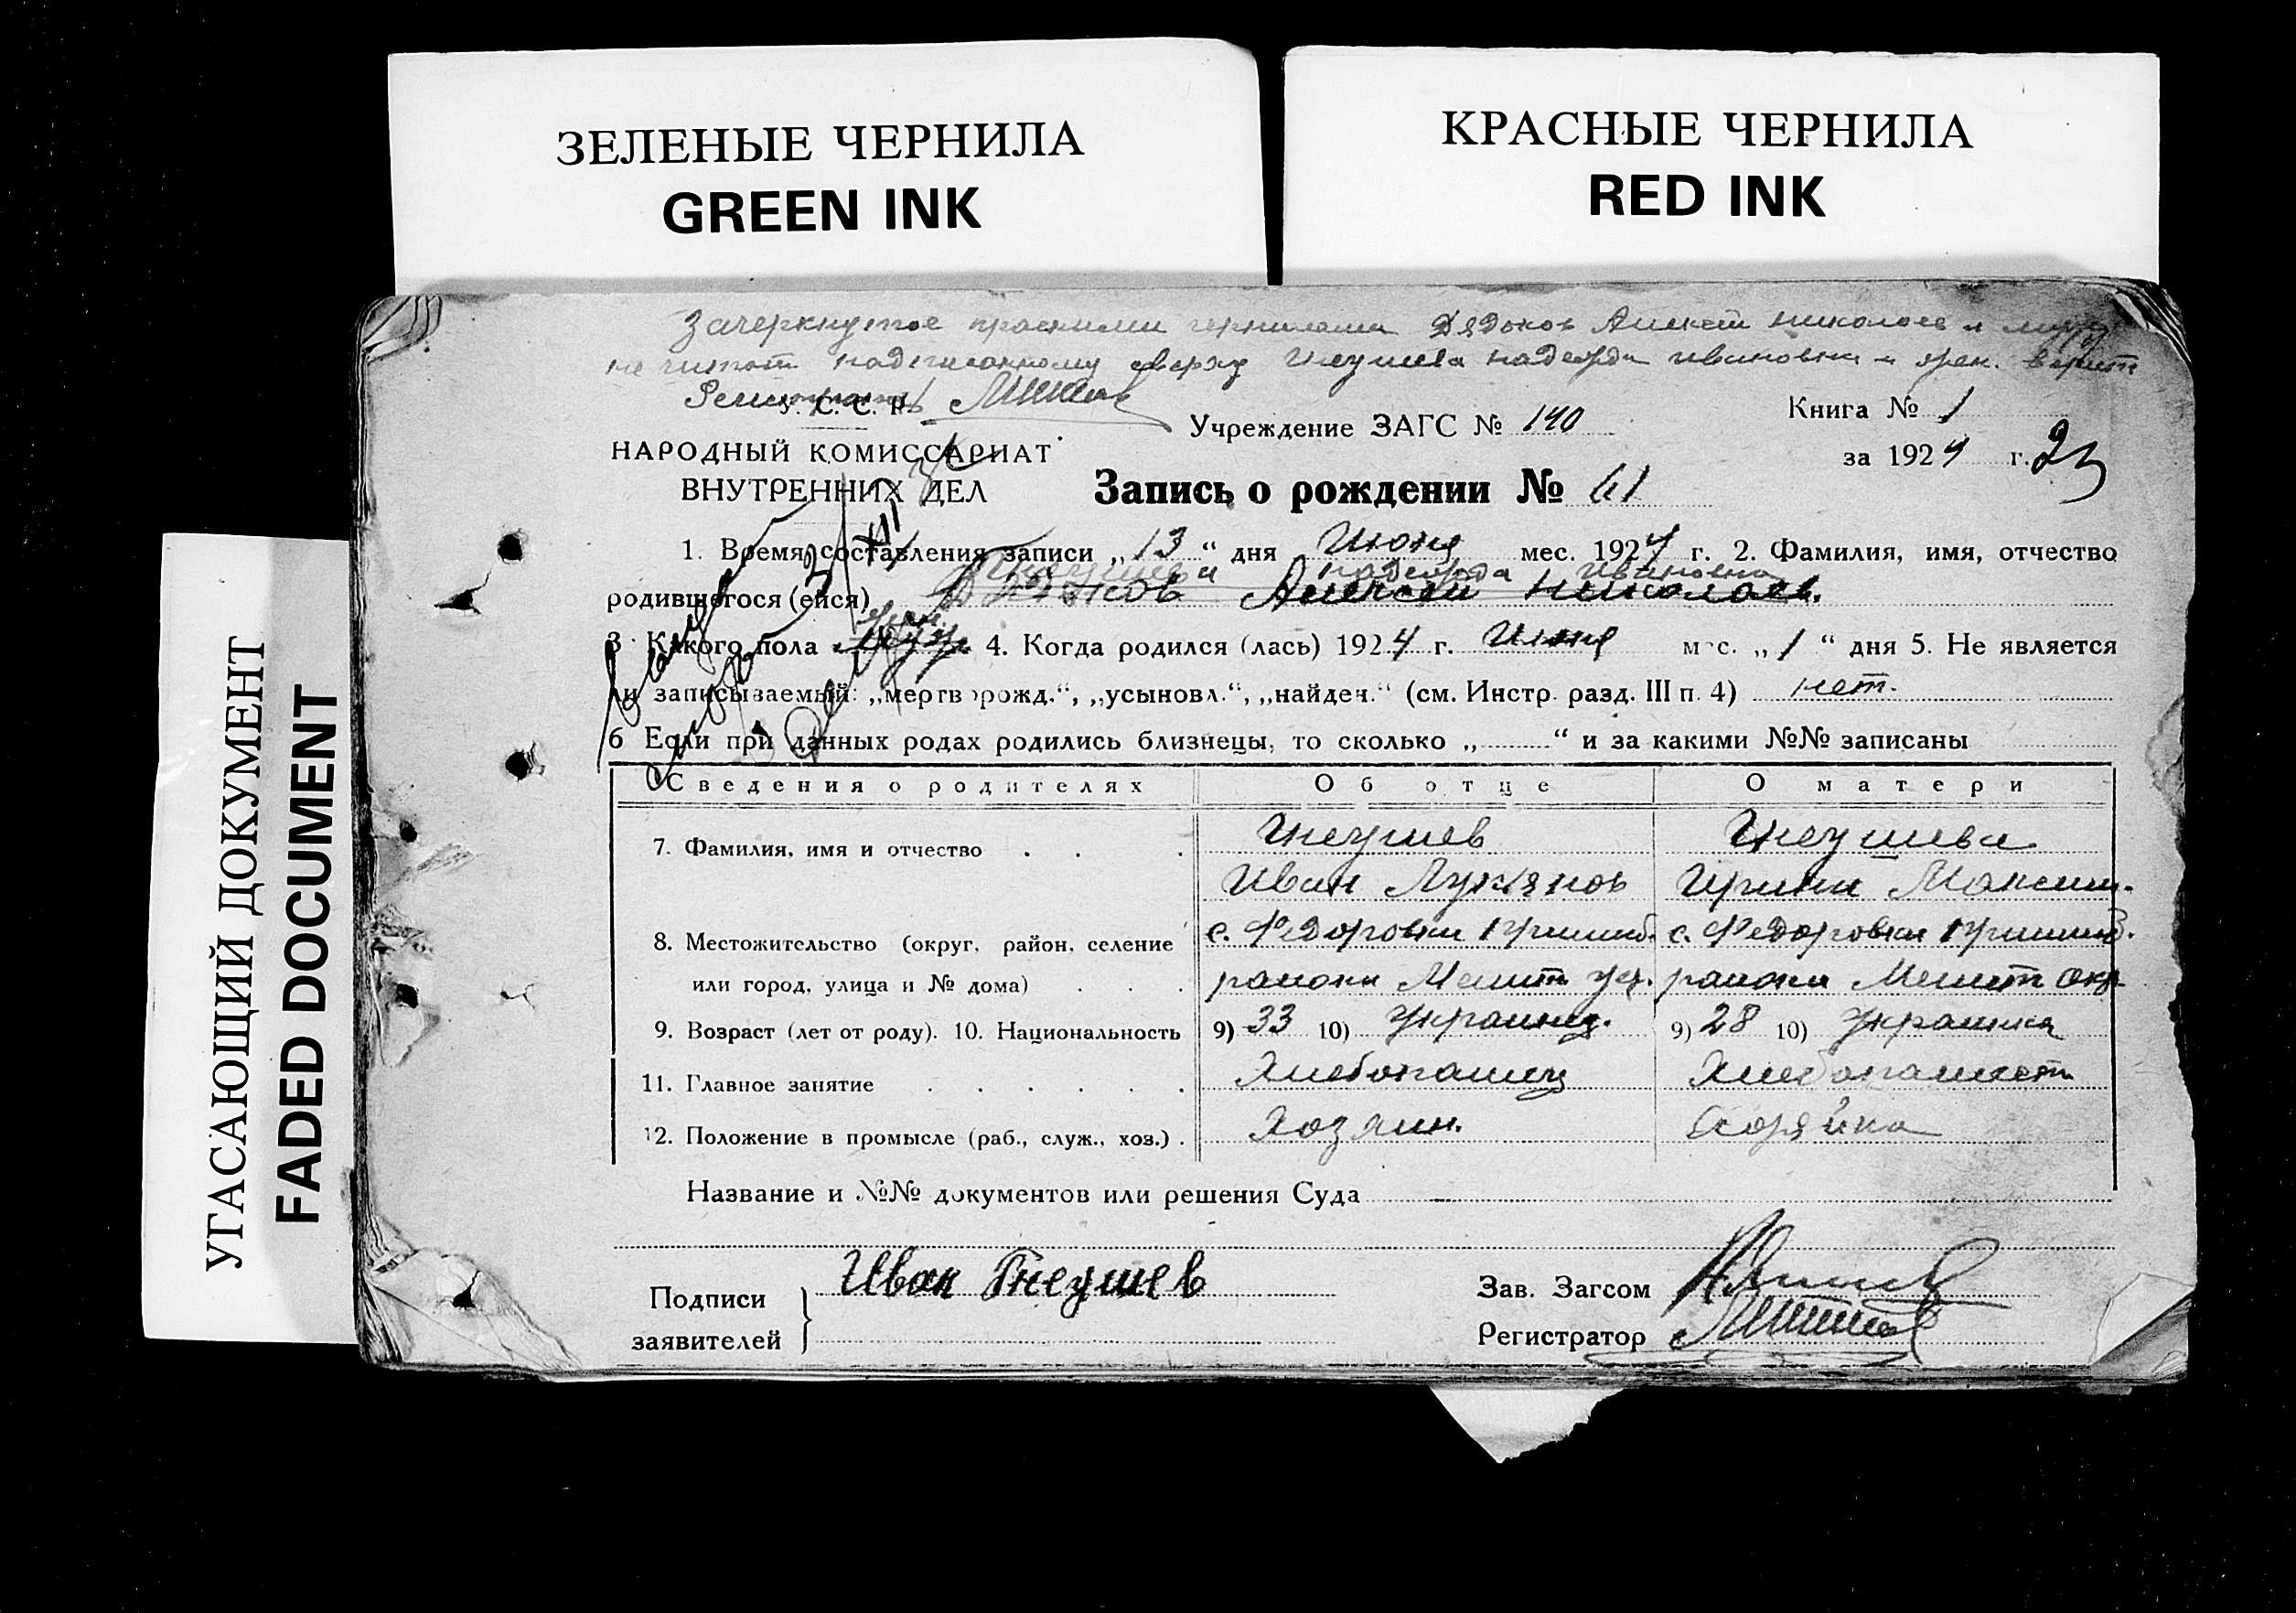 ЗЕЛЕНЫЕ ЧЕРНИЛА
GREEN INK
КРАСНЫЕ ЧЕРНИЛА
RED INK
УГАСАЮЩИЙ ДОКУМЕНТ
FADED DOCUMENT
Зачеркнутое красными чернилами Дядюков Алексей Николаев и муж
не читать надписанному сверху Гнеушева Надежда Ивановна и жен. верить
Регистратор
У. С. С. Р.
НАРОДНЫЙ КОМИССАРИАТ
ВНУТРЕННИХ ДЕЛ
Учреждение ЗАГС № 140
Книга № 1
за 1924 г. 23
Запись о рождении № 61
1. Время составления записи „13“ дня Июня мес. 1924 г. 2. Фамилия, имя, отчество
Гнеушева Надежда Ивановна
родившегося (ейся) Алексей Николаев.
жен.
3 Какого пола муж 4. Когда родился (лась) 1924 г. Июня мес. „1“ дня 5. Не является
ли записываемый: „мертворожд.“, „усыновл.“, „найден.“ (см. Инстр. разд. III п. 4) нет.
6 Если при данных родах родились близнецы, то сколько „ “ и за какими №№ записаны
Сведения о родителях Об отце О матери
7. Фамилия, имя и отчество Гнеушев Гнеушева
Иван Лукянов Ирина Максим.
8. Местожительство (округ, район, селение с. Федоровки Гришинб. с. Федоровки Гришинб.
или город, улица и № дома) района Мелит района Мелит окр.
9. Возраст (лет от роду). 10. Национальность 9) 33 10) Украинц. 9) 28 10) Украинка
11. Главное занятие Хлебопашец Хлебопашест
12. Положение в промысле (раб., служ., хоз.) Хозяин. Хозяйка
Название и №№ документов или решения Суда
Подписи
заявителей
Иван Гнеушев
Зав. Загсом
Регистратор